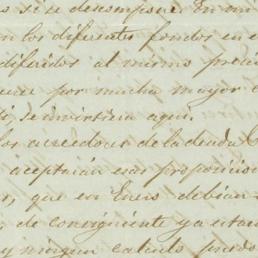 se desempeñe En
en los diferentes fondos en e
diferidos al mismo preci
por mucha mayor c
, se invirtiera aqui.
los acreedores de la deuda C
aceptarian esas proposicion
, que en Enero debian
, de consiguiente ya esta
y ningun calculo puede